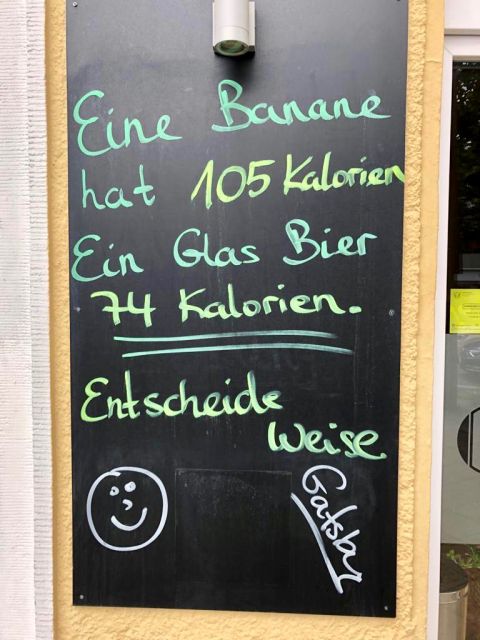 Eine Banane
hat 105 Kalorien
Ein Glas Bier
74 Kalorien.
Entscheide
Weise
Gatsby